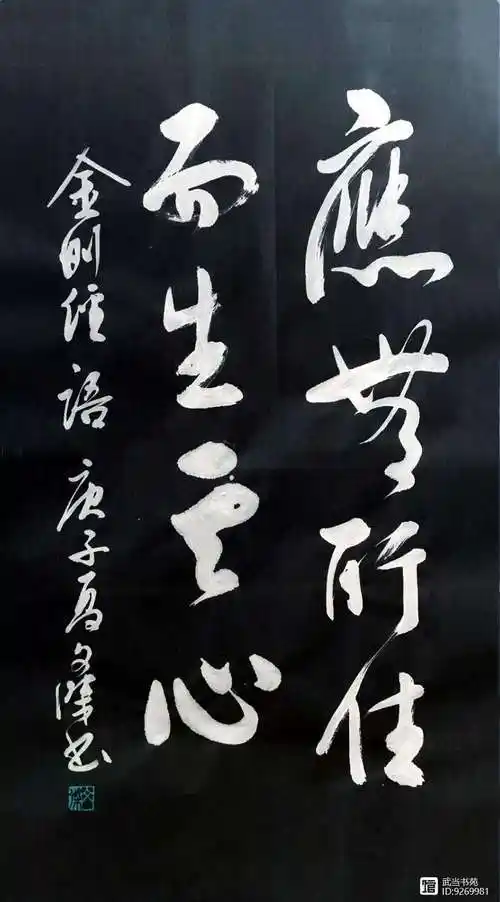 應無所住
而生其心
金刚经语 庚子夏文书
武当书苑
ID:9269981